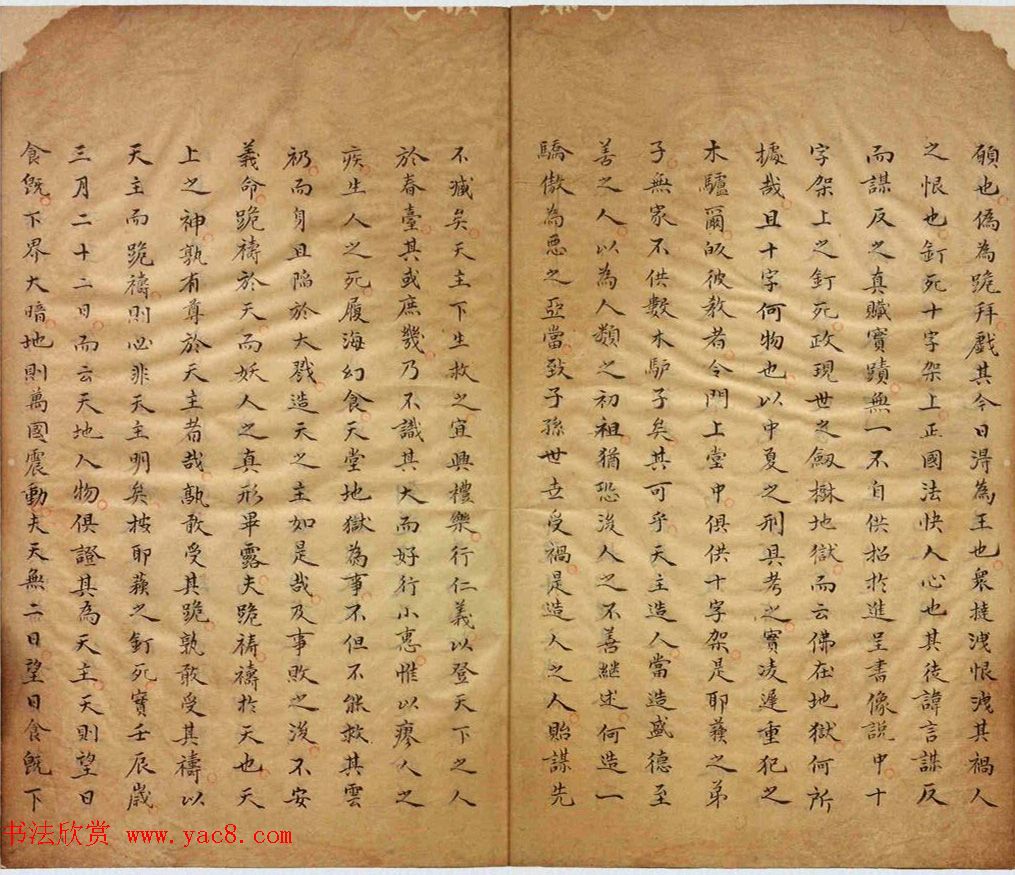 願也偽為跪拜戲其今日得為王也衆撻洩恨洩其禍人
之恨也釘死十字架上正國法快人心也其徒諱言謀反
而謀反之真贓實蹟無一不自供招於進呈書像說中十
字架上之釘死政現世之劔樹地獄而云佛在地獄何所
據哉且十字何物也以中夏之刑具考之實凌遲重犯之
木驢爾皈彼教者令門上堂中俱供十字架是耶蘓之弟
子無家不供數木馿子矣其可乎天主造人當造盛德至
善之人以為人類之初祖猶恐後人之不善繼述何造一
驕傲為惡之亞當致子孫世世受禍是造人之人貽謀先
不臧矣天主下生救之宜興禮樂行仁義以登天下之人
於春臺其或庶幾乃不識其大而好行小惠惟以療人之
疾生人之死履海幻食天堂地獄為事不但不能救其雲
礽而身且陷於大戮造天之主如是哉及事敗之後不安
義命跪禱於天而妖人之真形畢露夫跪禱禱於天也天
上之神孰有尊於天主者哉孰敢受其跪孰敢受其禱以
天主而跪禱則必非天主明矣按耶蘓之釘死實壬辰歲
三月二十二日而云天地人物俱證其為天主天則望日
食旣下界大暗地則萬國震動夫天無二日望日食旣下
书法欣赏 www.yac8.com